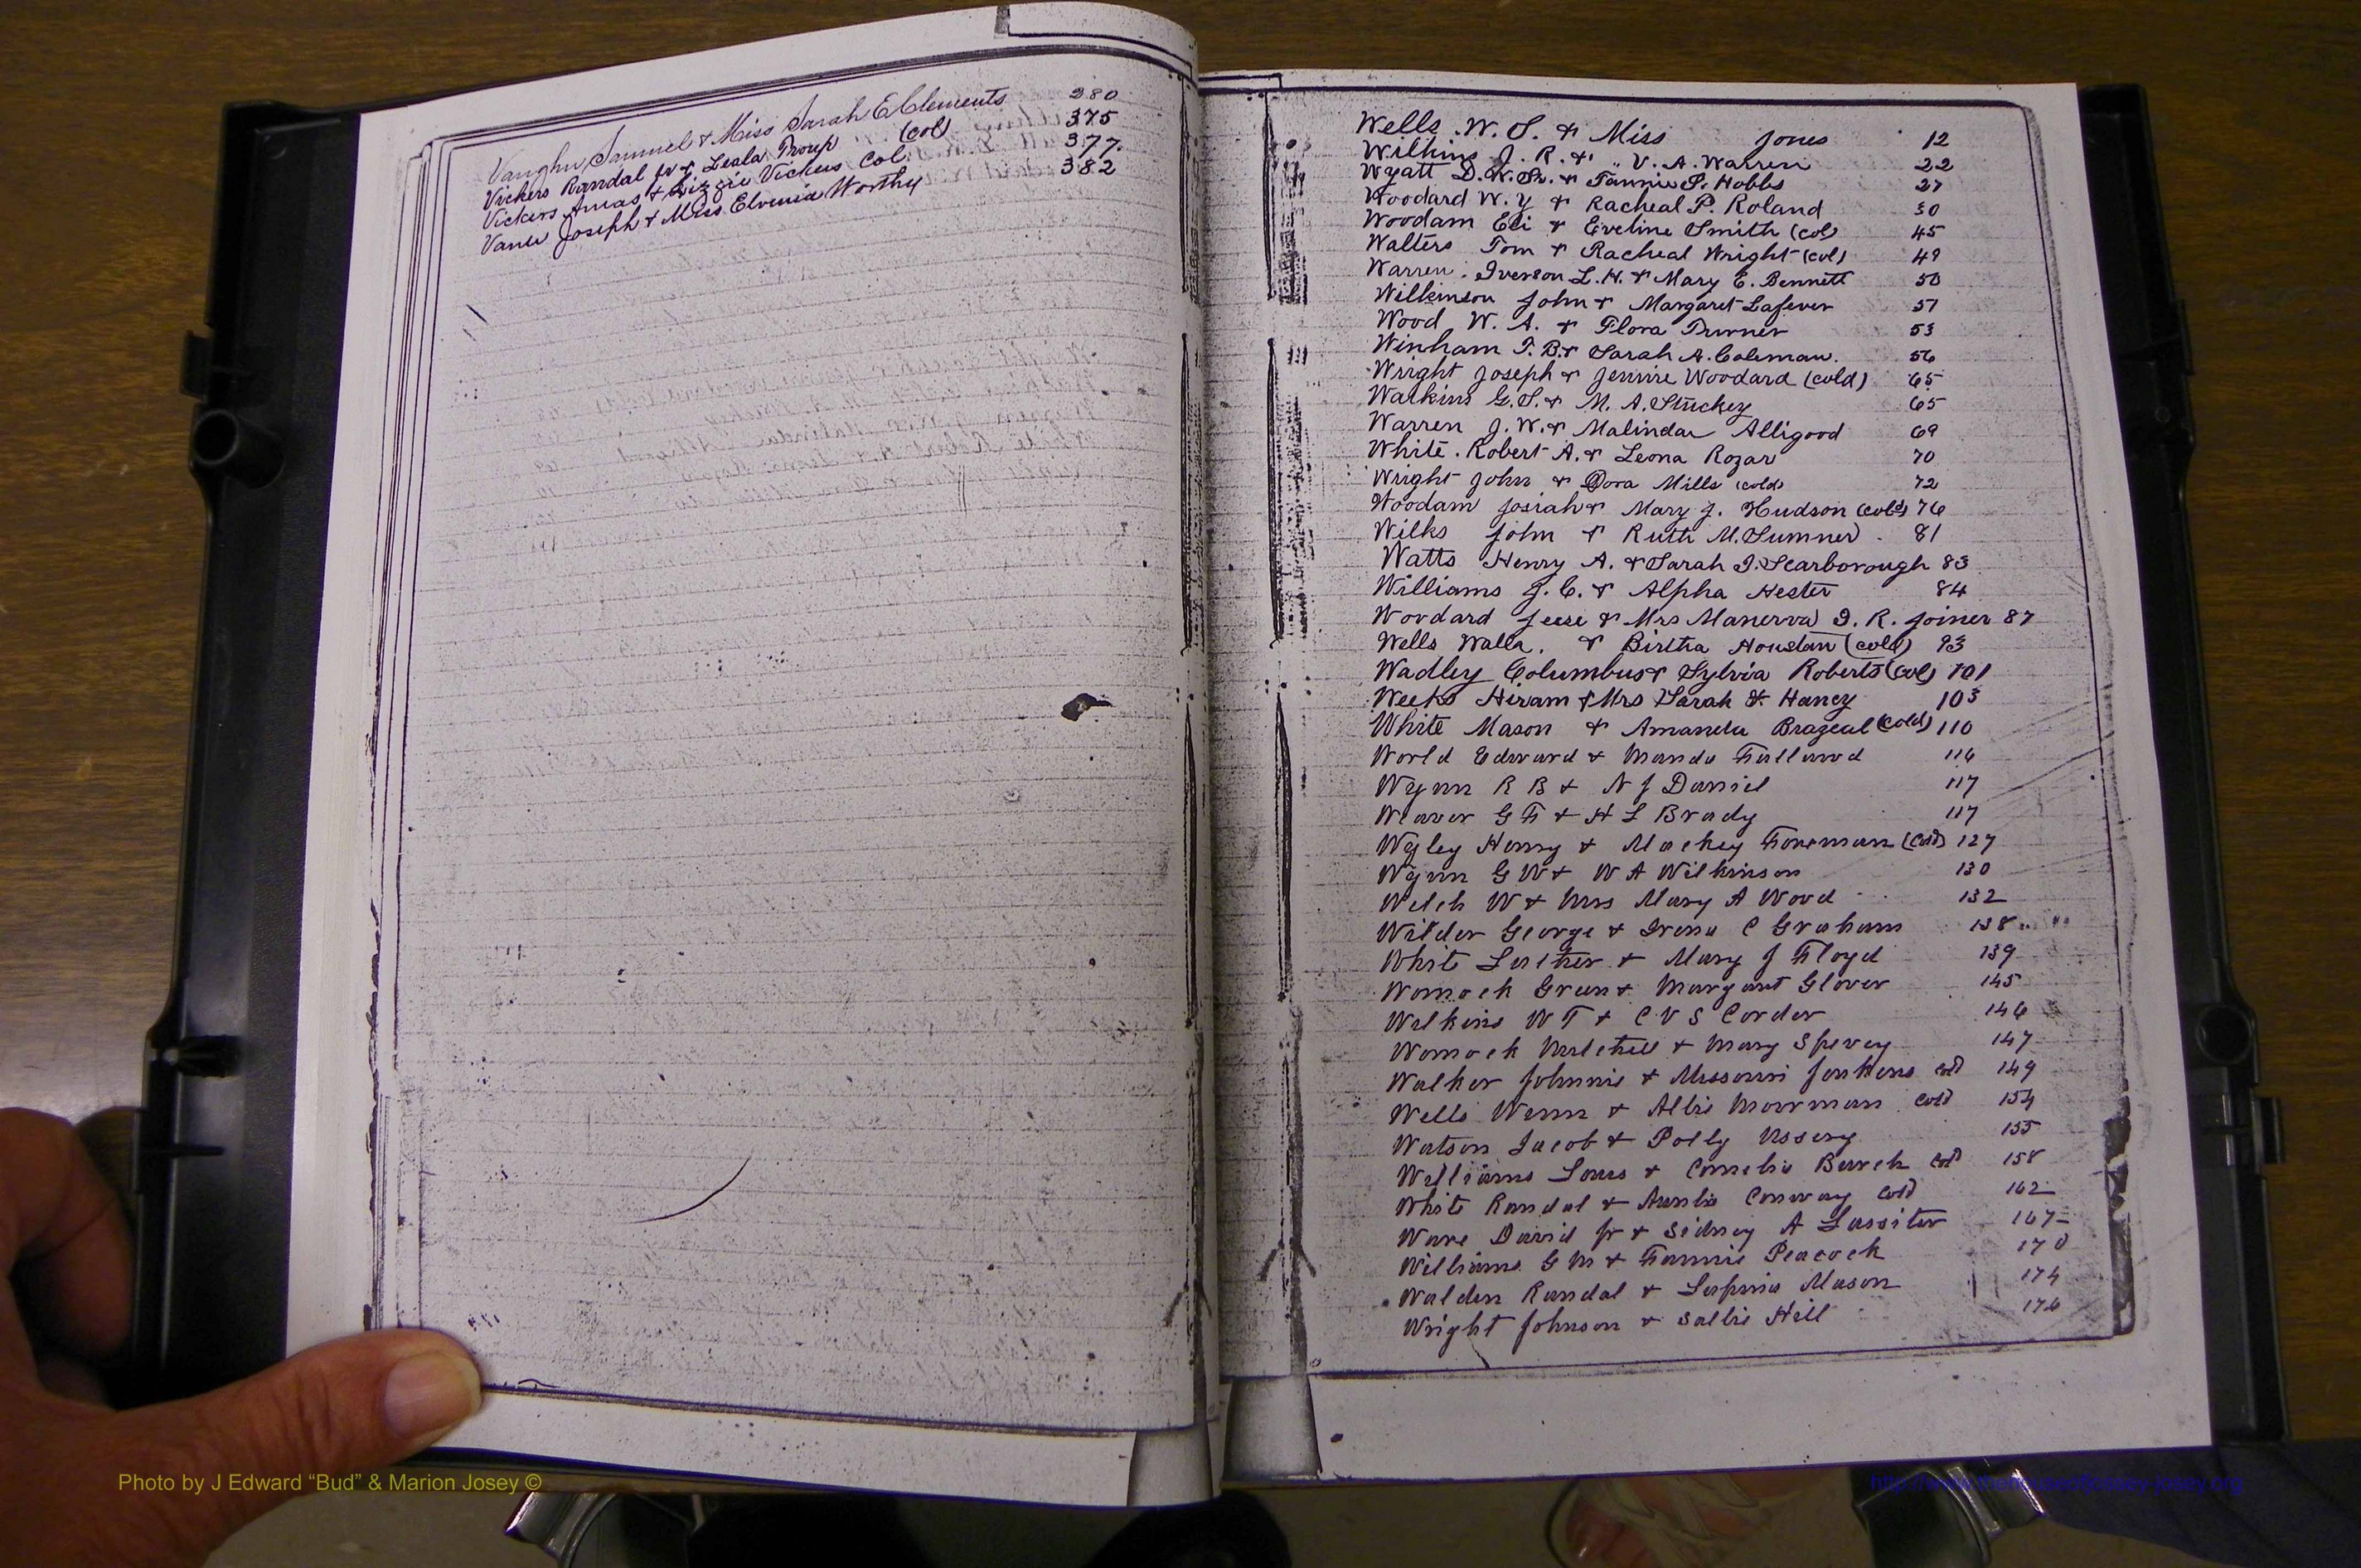 Vaughn Samuel & Miss Sarah E Clements 280
Vickers Randal & Leala Troup (col) 375
Vickers Amas & Lizzie Vickers Col. 377.
Joseph & Miss Elvenia Worthy 382
Wells W. S. & Miss Jones 12
Wilkins J. R. & " V. A. Warren 22
Wyatt D. W. & Fannie P. Hobbs 27
Woodard W. Y & Racheal P. Roland 30
Woodam Eli & Eveline Smith (col) 45
Walters Tom & Racheal Wright (col) 49
Warren Iverson L. H. & Mary E. Bennett 50
Wilkinson John & Margaret Lafever 51
Wood W. A. & Flora Turner 53
Winham T. B. & Sarah A. Coleman. 56
Wright Joseph & Jennie Woodard (cold) 65
Watkins G. S. & M. A. Stuckey 65
Warren J. W. & Malinda Alligood 69
White Robert A. & Leona Rozar 70
Wright John & Dora Mills (cold) 72
Woodam Josiah & Mary J. Hudson (cold) 76
Wilks John & Ruth M. Sumner 81
Watts Henry A. & Sarah I. Scarborough 83
Williams J. C. & Alpha Hester 84
Woodard Jesse & Mrs Manerva I. R. Joiner 87
Wells Walla. & Birtha Houstan (cold) 93
Wadley Columbus & Sylvia Roberts (col) 101
Weeks Hiram & Mrs Sarah F. Haney 103
White Mason & Amanda Brazeal (cold) 110
World Edward & Manda 116
Wynn R B & N J Daniel 117
Weaver G F & H L Brady 117
Wyley Henry & Mackey Foreman (cold) 127
Wynn G W & W A Wilkinson 130
Welch W & Mrs Mary A Wood 132
Wilder George & Irena C Graham 138
White Luther & Mary J Floyd 139
Womock Green & Margaret Glover 145
Wilkins W T & C V S Corder 146
Womock Mitchell & Mary Spivey 147
Walker Johnnie & Missouri Jenkens cold 149
Wells Wenn & Allie Moorman cold 154
Watson Jacob & Polly Ussery 155
Williams Louis & Cornelia Burch cold 158
White Randal & Conway cold 162
Ware David Jr & Sidney A Lassiter 167
Williams G M & Fannie Peacock 170
Walden Randal & Mason 174
Wright Johnson & Sallie Hill 176
Photo by J Edward “Bud” & Marion Josey ©
http://www.thehouseofjossey-josey.org